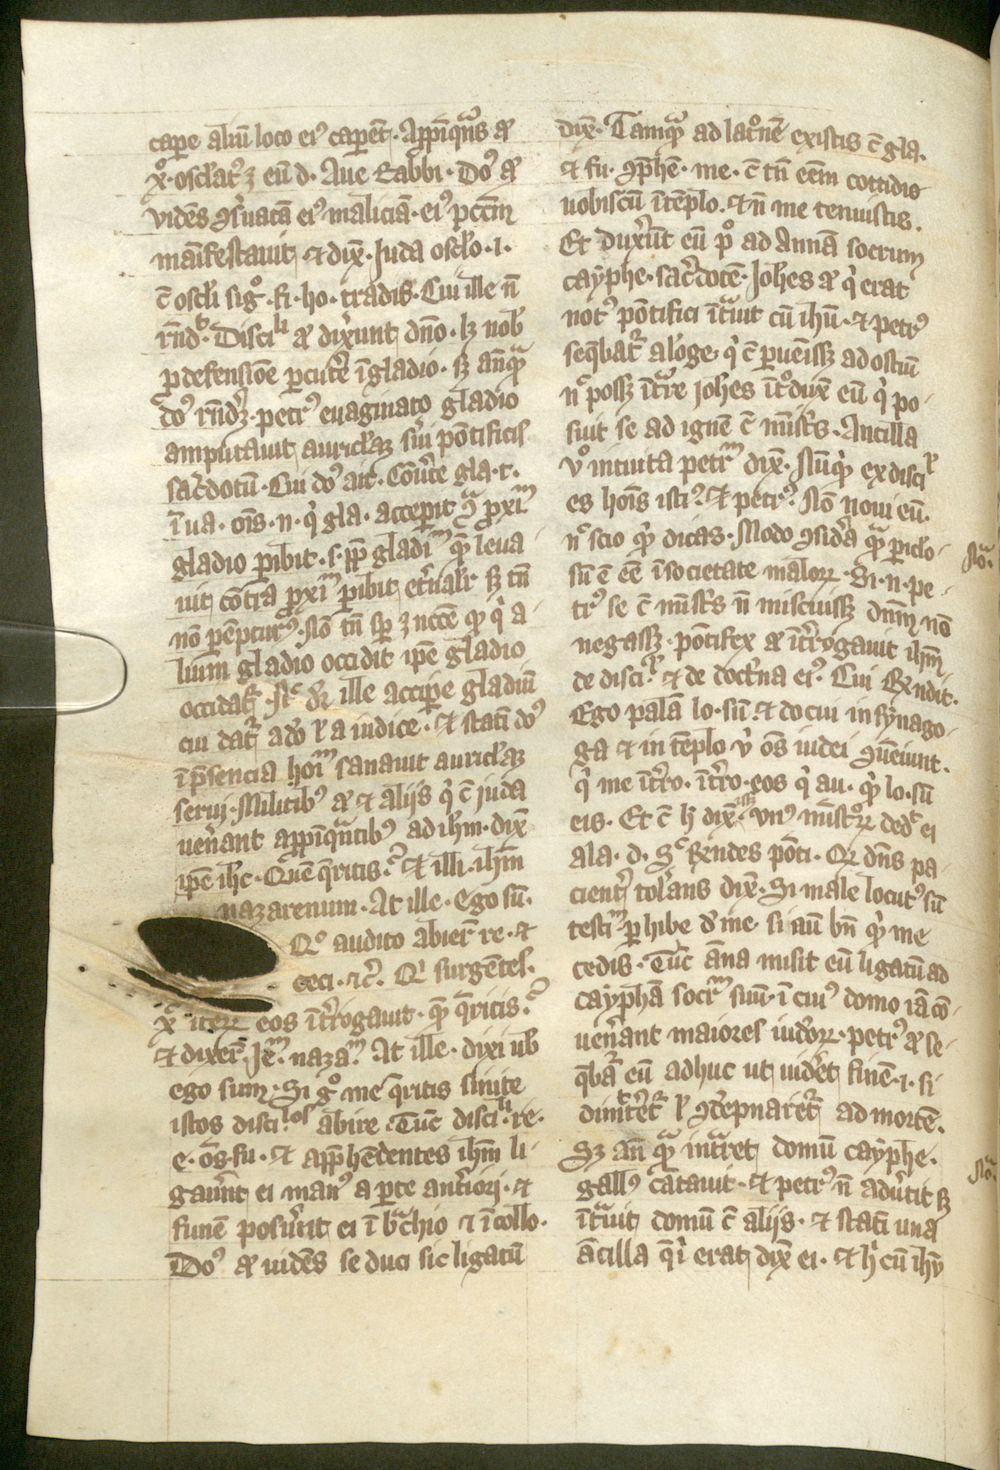 cape aliū loco eiꝰ capēt. Appīqͣns aͤ
xͦ. osclatꝰ ꝫ eū d. Aue Rabbi. Doꝰ aͤ
vidēs ꝯẜuatā eiꝰ maliciā. eiꝰ pctm̄
māifestauit ⁊ dix̄. Juda osclo .i.
c̄ oscli sigͦ. fi. ho. tradis. Cui ille n̄
rn̄dᵗ. Disciˡⁱ aͤ dixunt dn̄o. lꝫ nob̄
ꝓ defensiōe ꝑcutē ī gladio. sꝫ an̄qͣꝫ
doꝰ rn̄dꝫ. petrꝰ euaginato gladio
amputauit auriclaꝫ sui pōtificis
sacͥdotū. Cui doꝰ ait. Cōuͤte gla. t.
ī ua. oīs. n. qͥ gla. accepit ꝯͣ ꝓxīᵐ
gladio ꝑibit. s. ꝓp̄ gladiᵐ quē leua
uit cōtra ꝓxīᵐ ꝑibit et̄nalr̄ sꝫ tn̄
nō pēpturꝰ. Nō tn̄ sꝑ ꝫ nccē ꝙ qͥ a
lium gladio occidit ipē gladio
occidat̄. Sꝫ dr̄ ille accipe gladiū
cui dat̄ a dō ł a iudice. ⁊ statī doꝰ
ī p̄sencia hoīᵐ sanauit auriclaꝫ
serui. Militibꝰ aͤ ⁊ alijs qͥ c̄ juda
ueñant appīqͣntibꝰ ad ihm̄. dix̄
ipē ihc̄. Quē q̄ritis? ⁊ illi. ihm̄
nazarenum. At ille. Ego sū.
Qͦ audito abierͭ re. ⁊
ceci. ⁊c̄. Qͥ surgētes.
xͣ iterꝝ eos īt̄rogauit. quē q̄ritis?
⁊ dixerͭ. Jēᵐ. nazaᵐ. At ille. dixi uƀ
ego sum. Si gͦ me q̄ritis sinite
istos disciˡᵒˢ abire. Tūc disciˡⁱ. re.
e. oēs fu. ⁊ app̄hēdentes ihm̄ li
gauͤnt ei manꝰ a pͭte antͥiori. ⁊
funē posuͤrit ei ī bͣchio ⁊ ī collo.
Doꝰ aͤ uidēs se duci sic ligatū
dix̄. Tamqͣꝫ ad latͦnē existis c̄ gla.
⁊ fu. ꝯp̄hē. me. c̄ tn̄ eēm cottidie
uobiscū ī tēplo. ⁊ n̄ me tenuistis.
Et duxͤrūt eū pͦ ad Annā socrum
cayphe. sacͥdotē. Johēs aͤ qͥ erat
notꝰ pōtifici ītͣuit cū ihū. ⁊ petrꝰ
seqͤbatͬ a lōge. qͥ c̄ ꝑuēissꝫ ad ostiū
n̄ possꝫ ītͣre johēs ītͦdux̄ eū qͥ po
suit se ad ignē c̄ mīsts. Ancilla
vͦ intuita petrᵐ dix̄. Nūqͥd ex disciˡ
es hoīs isti? ⁊ petrꝰ. Nō noui eū.
nͤscio qͥd dicas. Modo ꝯsidͣa qͣꝫ ꝑiclo
sū ē eē ī societate malorꝝ. Si. n. pe
trꝰ se c̄ mīsts n̄ miscuissꝫ dn̄m nō
negassꝫ. Pōtifex aͤ īt̄rogauit ihm̄
de disciˡ. ⁊ de doctͥna eiꝰ. Cui Rn̄dit.
Ego palā lo. sū. ⁊ docui in synago
ga ⁊ in tēplo v̄ oēs iudei ꝯueniunt.
qͥd me ītͤro. ītͤro. eos qͥ au. qͥd lo. sū
eis. Et c̄ h̄ dix̄ꝫ. vnꝰ mīstͦrꝝ dedͭ ei
ala. d. Sͥc Rn̄des pōti. Qͬ dn̄s pa
cient̄ tolͣans dix̄. Si male locutꝰ sū
testīᵐ ꝑhibe dͤ me. si aū bn̄ qͥd me
cedis. Tūc āna misit eū ligatū ad
cayphā socrᵐ suū. ī cuiꝰ domo iā cō
ueñant maiores iudͤorꝝ. petrꝰ aͤ se
qͤbatͬ eū adhuc ut uidͤet finē .i. si
dimitͤretͬ ł ꝯdēpnaretͬ ad mortē.
Sꝫ an̄ qͣꝫ intͣret domū cayphe.
gallꝰ cātauit. ⁊ petrꝰ n̄ aduͤtit sꝫ
ītͣuit domū c̄ alijs. ⁊ statī una
ācilla q̄ ī erat dix̄ ei. ⁊ hͥ cū ihū
Noͣ.
Noͣ.